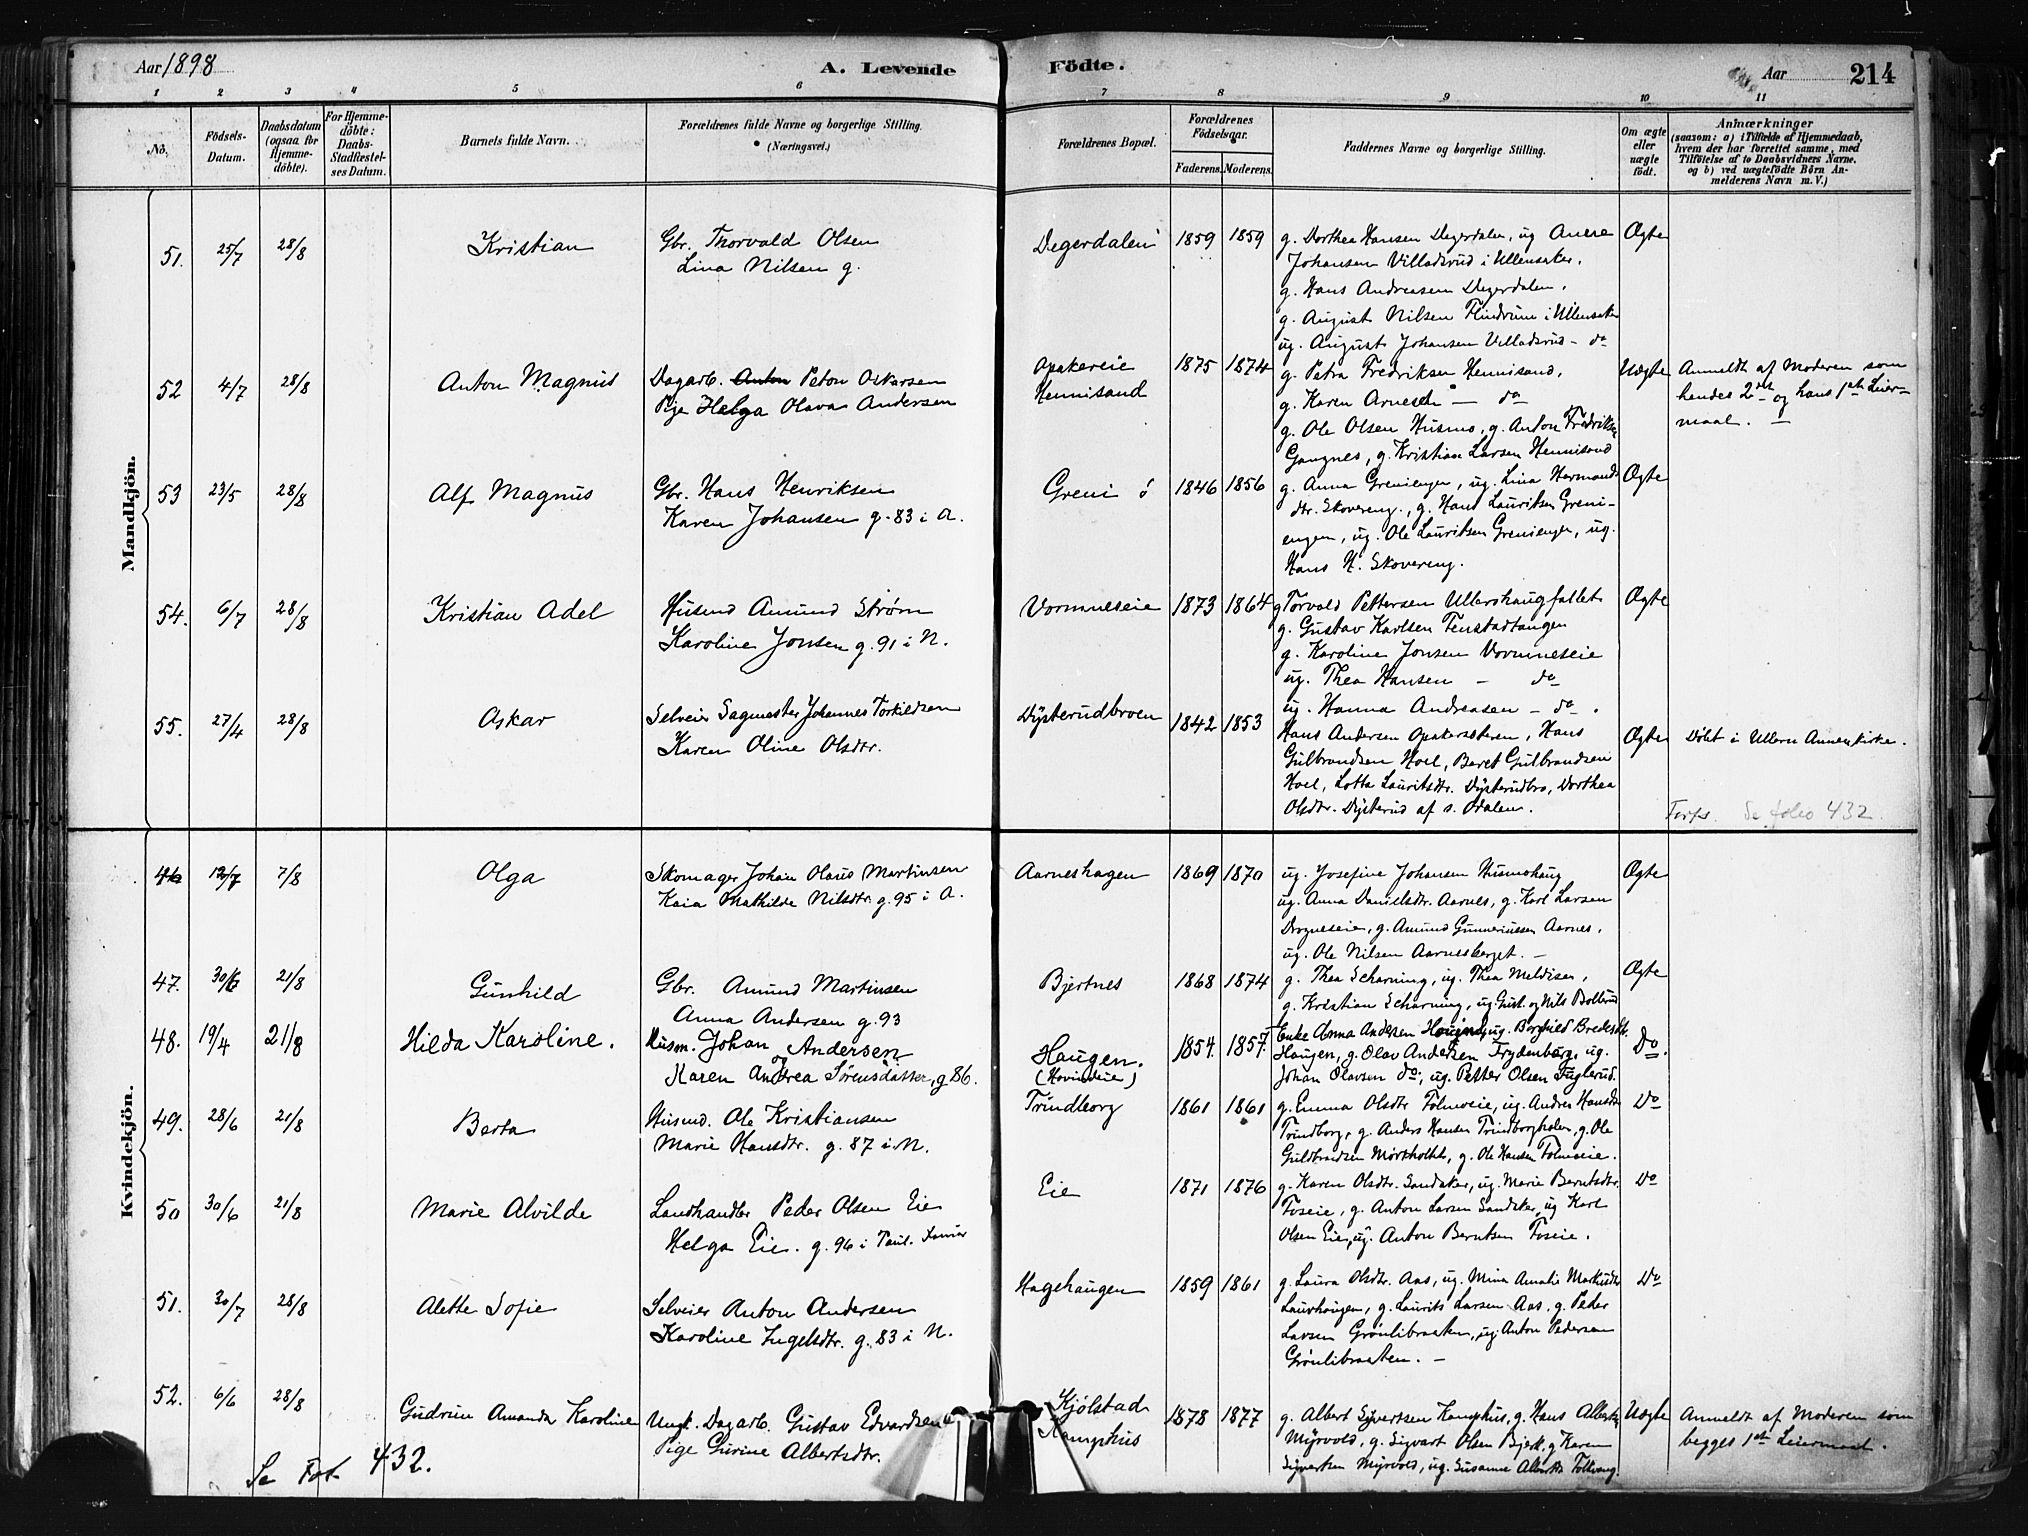 Aar 1898
A. Levende
Födte.
Aar
214
1 2 3 4 5 6 7 8 9 10 11
No.
Födsels-
Datum.
Daabsdatum
(ogsaa for
Hjemme-
döbte).
For Hjemme-
döbte:
Daabs-
Stadfæstel-
ses Datum.
Barnets fulde Navn.
Forældrenes fulde Navne og borgerlige Stilling.
(Næringsvei.)
Forældrenes Bopæl.
Forældrenes
Födselsaar.
Faderens. Moderens.
Faddernes Navne og borgerlige Stilling.
Om ægte
eller
uægte
födt.
Anmærkninger
(saasom: a) i Tilfælde af Hjemmedaab,
hvem der har forrettet samme, med
Tilföielse af to Daabsvidners Navne,
og b) ved uægtefödte Börn An-
melderens Navn m. V.)
Mandkjön.
51. 25/7 28/8 Kristian
Gbr. Thorvald Olsen
Lina Nilsen g.
Degerdalen 1859 1859
g. Dorthea Hansen Degerdalen, ug
Johansen Villadsrud i Ullensaker.
g. Hans Andreasen Degerdalen.
g. August Nilsen Flindrum i Ullensaker
ug. August Johansen Villadsrud - do
Ægte
52 4/7 28/8 Anton Magnus
Dagarb. Anton Peton Oskarsen
Pige Helga Olava Andersen
Opakereie
Hennisand
1875 1874
g. Petra Fredriksen Hennisand,
g. Karen Arnesen — do
g. Ole Olsen Husmo, g. Anton Fredriksen
Gangnes, g. Kristian Larsen Hennisand
Uægte
Anmeldt af Moderen som
hendes 2det og hans 1ste Leier-
maal. —
53 23/5 28/8 Alf Magnus
Gbr. Hans Henriksen
Karen Johansen g. 83 i A.
Greni ö 1846 1856
g. Anna Greniengen, ug. Lina Hermands
dtr. Skovereng., g. Hans Lauritsen Greni-
engen, ug. Ole Lauritsen Grenienger, ug.
Hans H. Skovereng.
Ægte
54. 6/7 28/8 Kristian Adel
Husmd Amund Strøm
Karoline Jonsen g. 91 i N.
Vormneseie 1873 1864
g Torvald Pettersen Ullershaugfallet
g. Gustav Karlsen Fenstadtangen
g. Karoline Jonsen Vormneseie
ug. Thea Hansen - do
ug. Hanna Andreasen - do.
Ægte
55. 27/4 28/8 Oskar
Selveier Sagmester Johannes Torkildsen
Karen Oline Olsdtr.
Dysterudbroen 1842 1853
Hans Andersen Opakersæteren, Hans
Gulbrandsen Hoel, Beret Gulbrandsen
Hoel, Lotta Lauritsdtr. Dysterudbro, Dorthea
Olsdtr. Dysterud af s. Odalen.
Ægte
Döbt i Ullern Annexkirke.
Forts. Se folio 432
Kvindekjön.
46 12/7 7/8 Olga
Skomager Johan Olaus Martinsen
Kaia Mathilde Nilsdtr. g. 95 i A.
Aarneshagen 1869 1870
ug. Josefine Johansen Husmohaug
ug. Anna Danielsdtr. Aarnes, g. Karl Larsen
Drogneseie, g. Amund Gunneriussen Aarnes.
ug. Ole Nilsen Aarnesberget. -
Ægte
47. 30/6 21/8 Gunhild
Gbr. Amund Martinsen
Anna Andersen g. 93
Bjertnes 1868 1874
g. Thea Scharning, ug. Thea Meldisen,
g. Kristian Scharning, ug. Gust. og Nils Bolbrud
Ægte
48. 19/4 21/8 Hilda Karoline.
Husm. Johan Andersen
og
Karen Andrea Sørensdatter, g. 86.
Haugen.
(Hovindeie)
1854. 1857.
Enke Anna Andersen Haugen, ug. Borghild Bredesdt.
Haugen, g. Olav Andersen Frydenberg, ug.
Johan Olavsen do, ug. Petter Olsen Fuglerud.
Do.
49. 28/6 21/8 Berta
Husmd. Ole Kristiansen
Marie Hansdtr. g. 87 i N.
Trindborg 1861 1861
g. Emma Olsdtr Tolmoeie, ug. Andrea Hansdtr
Trindborg, g. Anders Hansen Trindborgholen, g. Ole
Guldbrandsen Mørkholtet, g. Ole Hansen Tolmoeie.
Do
50 30/6 21/8 Marie Alvilde
Landhandler Peder Olsen Eie
Helga Eie. g. 96 i Paul.
Eie 1871 1876
g. Karen Olsdtr. Sandaker, ug. Marie Berntsdtr.
Foseie, g. Anton Larsen Sandaker, ug Karl
Olsen Eie, ug. Anton Berntsen Foseie.
Do
51. 30/7 28/8 Alette Sofie
Selveier Anton Andersen
Karoline Ingelsdtr. g. 83 i N.
Hagehaugen 1859 1861
g. Laura Olsdtr. Aas, ug. Mina Amalie Markusdtr
Laurhaugen, g. Laurits Larsen Aas. g. Peder
Larsen Grönlibraaten, ug. Anton Pedersen
Grönlibraaten. -
Do
52. 6/6 28/8 Gudrun Amanda Karoline
Ungk. Dagarb. Gustav Edvardsen
Pige Gurine Albertsdtr.
Kjölstad
Kamphus
1878 1877
g. Albert Syvertsen Kamphus, g. Hans Albertsen
Myrvold, g. Sigvart Olsen Bjerk, g. Karen
Syvertsen Myrvold, ug. Susanne Albertsdtr Tollvang.
Uægte
Anmeldt af Moderen som
begges 1ste Leiermaal.
Se Fol. 432.